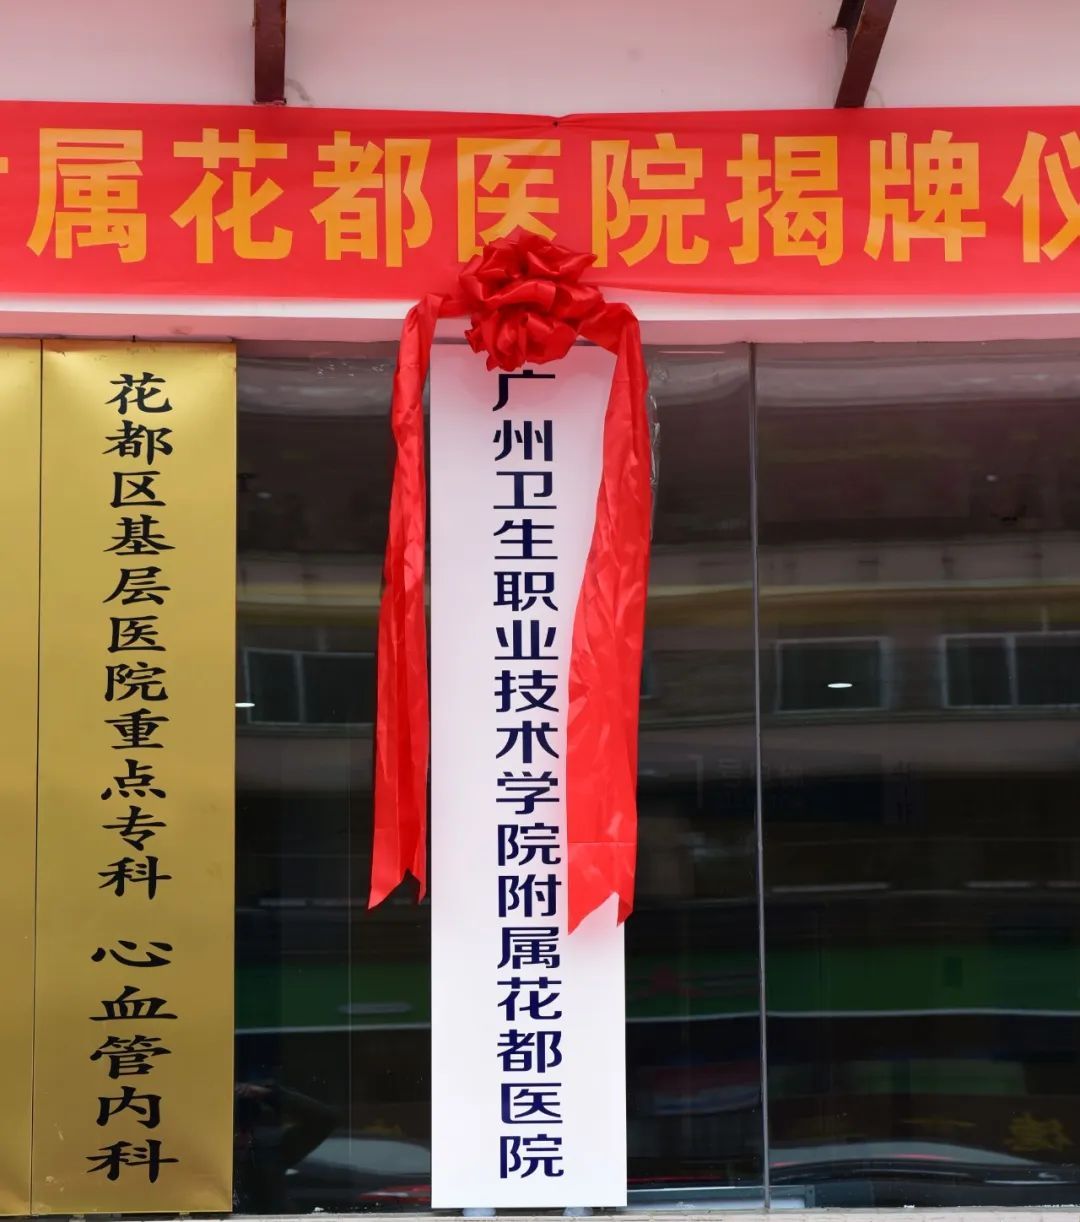 属花都医院揭牌仪
花都区基层医院重点专科 心血管内科
广州卫生职业技术学院附属花都医院